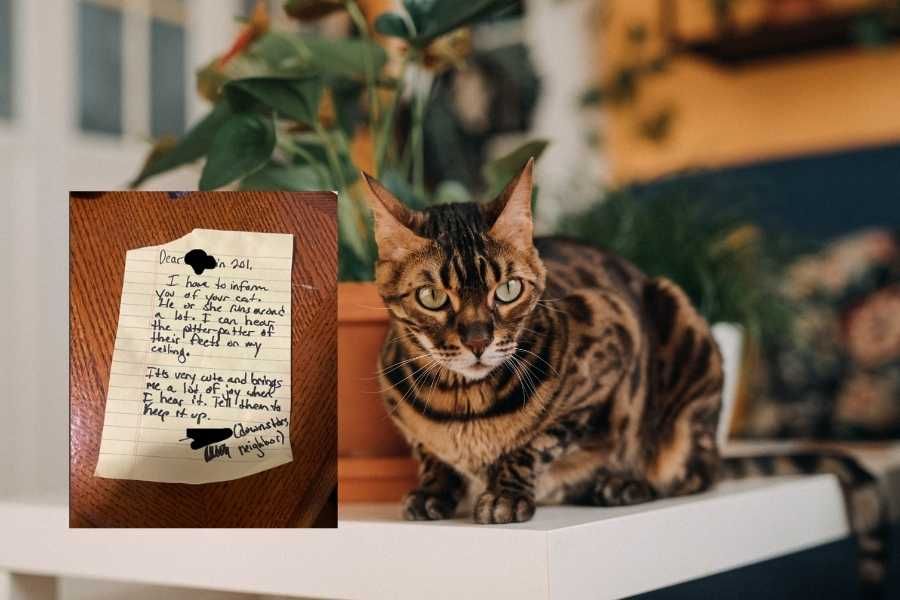 Dear in 201.
I have to inform
you of your cat.
He or she runs around
a lot. I can hear
the pitter-patter of
their feets on my
ceiling.
It's very cute and brings
me a lot of joy when
I hear it. Tell them to
keep it up.
(downstairs
neighbor)